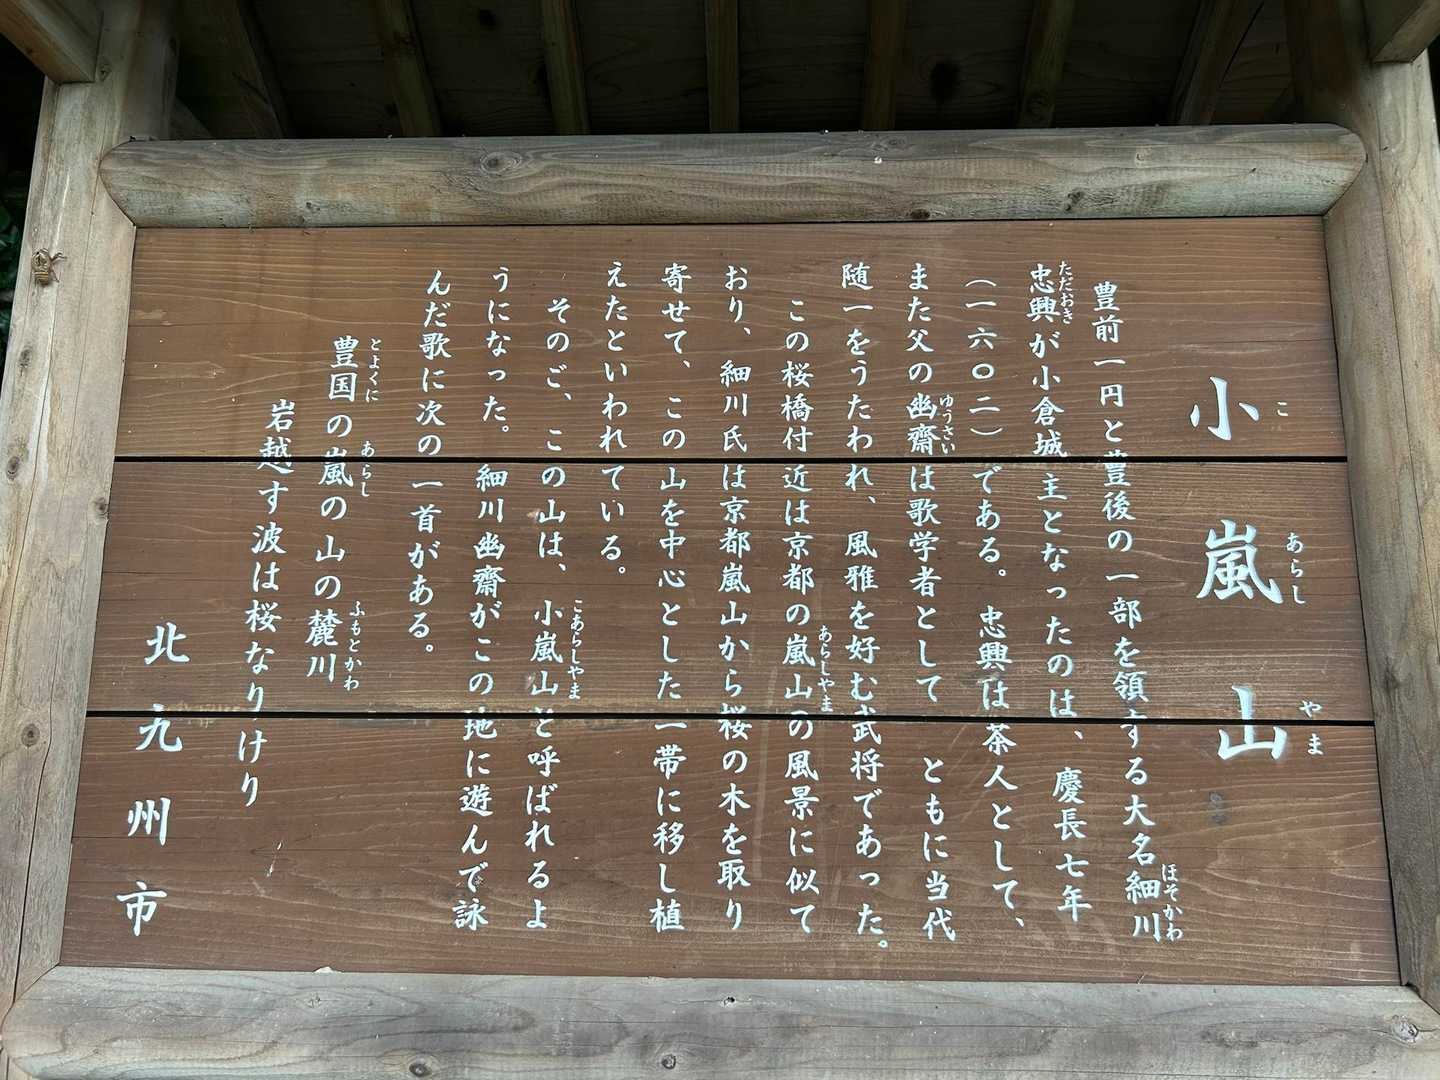 小嵐山
こ あらし やま
豊前一円と豊後の一部を領する大名細川
ほそかわ
忠興が小倉城主となったのは、慶長七年
ただおき
(一六〇二)である。忠興は茶人として、
また父の幽齋は歌学者として ともに当代
ゆうさい
随一をうたわれ、風雅を好む武将であった。
この桜橋付近は京都の嵐山の風景に似て
あらしやま
おり、細川氏は京都嵐山から桜の木を取り
寄せて、この山を中心とした一帯に移し植
えたといわれている。
そのご、この山は、小嵐山と呼ばれるよ
こあらしやま
うになった。細川幽齋がこの地に遊んで詠
んだ歌に次の一首がある。
豊国の嵐の山の麓川
とよくに あらし ふもとかわ
岩越す波は桜なりけり
北九州市